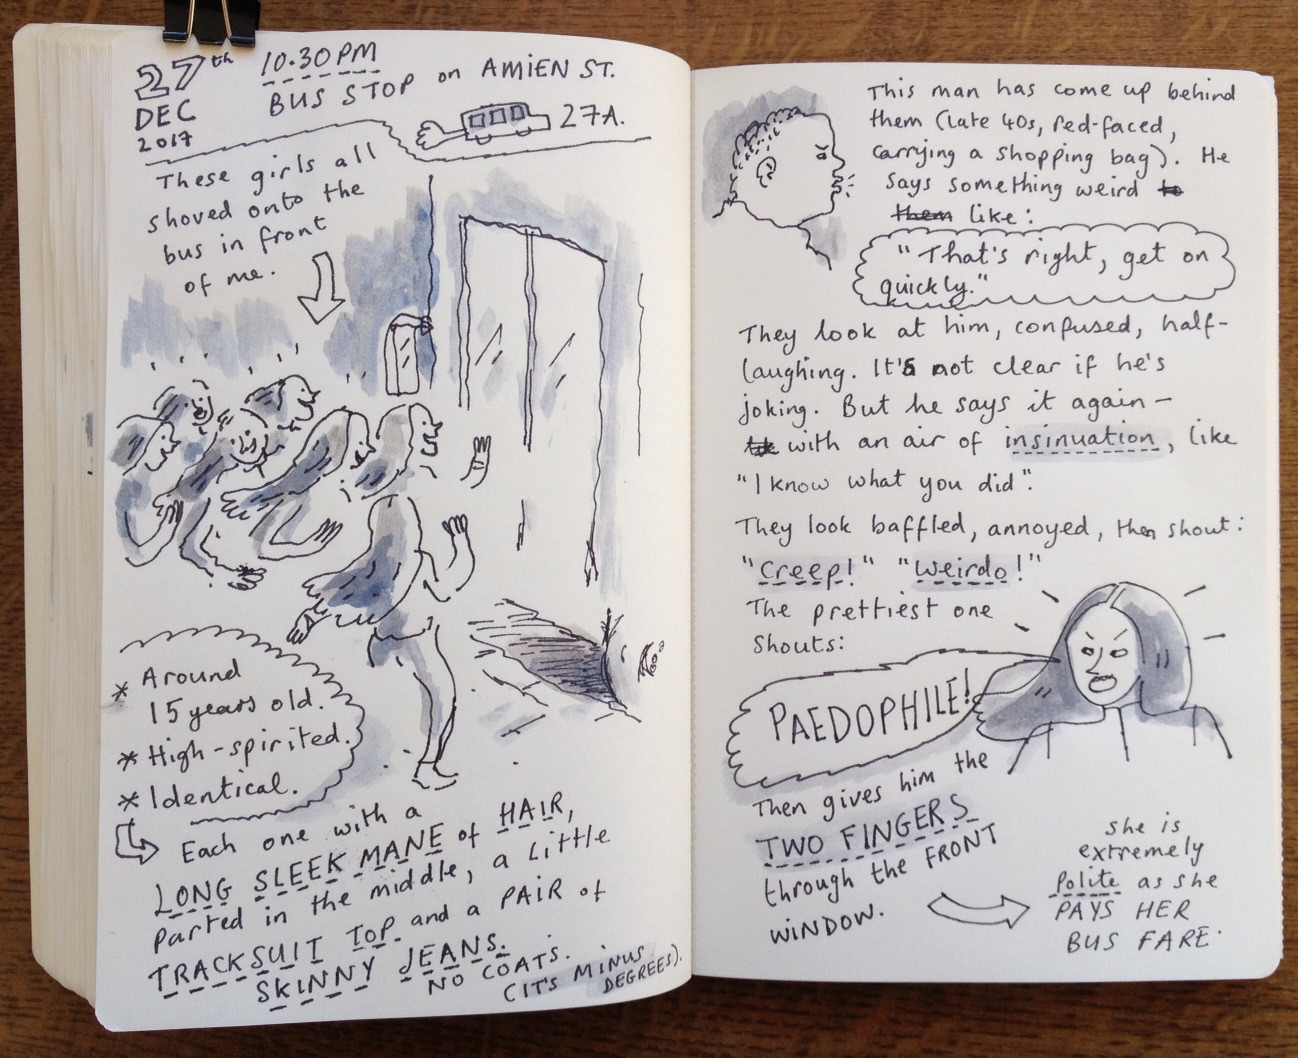 27th
DEC
2017
10.30PM
BUS STOP on AMIEN ST.
27A.
These girls all
shoved onto the
bus in front
of me.
* Around
15 years old.
* High-spirited.
* Identical.
Each one with a
LONG SLEEK MANE of HAIR,
parted in the middle, a little
TRACKSUIT TOP and a PAIR of
SKINNY JEANS.
NO COATS.
(IT'S MINUS
DEGREES).
This man has come up behind
them (late 40s, red-faced,
carrying a shopping bag). He
says something weird to
them like:
"That's right, get on
quickly."
They look at him, confused, half-
laughing. It's not clear if he's
joking. But he says it again -
with an air of insinuation, like
"I know what you did".
They look baffled, annoyed, then shout:
"Creep!" "Weirdo!"
The prettiest one
shouts:
PAEDOPHILE!
Then gives him the
TWO FINGERS
through the FRONT
WINDOW.
she is
extremely
Polite as she
PAYS HER
BUS FARE.